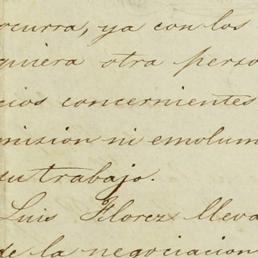 ocurra, ya con los
quiera otra perso
cios concernientes
mision ni emolum
su trabajo.
Luis Florez lleva
de la negociacion